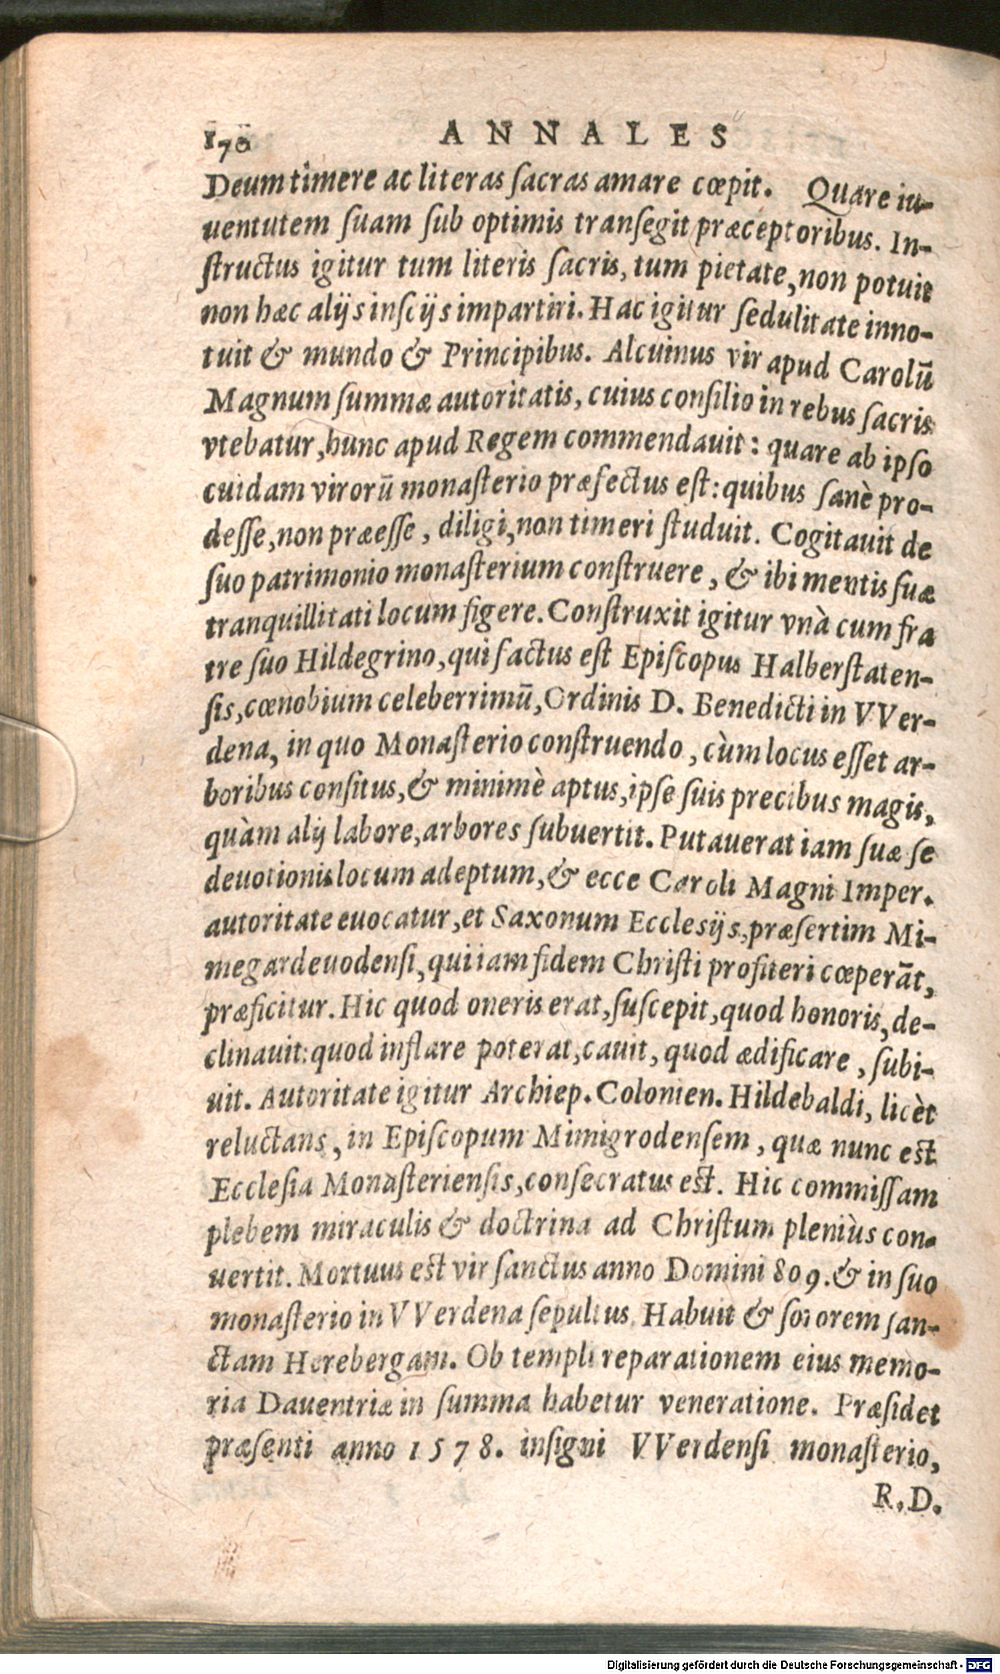 170 ANNALES
Deum timere ac literas sacras amare cœpit. Quare iu-
uentutem suam sub optimis transegit præceptoribus. In-
structus igitur tum literis sacris, tum pietate, non potuit
non hæc alijs insçijs impartiri. Hac igitur sedulitate inno-
tuit & mundo & Principibus. Alcuinus vir apud Carolū
Magnum summæ autoritatis, cuius consilio in rebus sacris
vtebatur, hunc apud Regem commendauit: quare ab ipso
cuidam virorū monasterio præfectus est: quibus sanè pro-
desse, non præesse, diligi, non timeri studuit. Cogitauit de
suo patrimonio monasterium construere, & ibi mentis suæ
tranquillitati locum figere. Construxit igitur vnà cum fra
tre suo Hildegrino, qui factus est Episcopus Halberstaten-
sis, cœnobium celeberrimū, Ordinis D. Benedicti in VVer-
dena, in quo Monasterio construendo, cùm locus esset ar-
boribus consitus, & minimè aptus, ipse suis precibus magis,
quàm alij labore, arbores subuertit. Putauerat iam suæ se
deuotionis locum adeptum, & ecce Caroli Magni Imper.
autoritate euocatur, et Saxonum Ecclesijs, præsertim Mi-
megardeuodensi, qui iam fidem Christi profiteri cœperāt,
præficitur. Hic quod oneris erat, suscepit, quod honoris, de-
clinauit: quod inflare poterat, cauit, quod ædificare, subi-
uit. Autoritate igitur Archiep. Colonien. Hildebaldi, licèt
reluctans, in Episcopum Mimigrodensem, quæ nunc est
Ecclesia Monasteriensis, consecratus est. Hic commissam
plebem miraculis & doctrina ad Christum pleniùs con-
uertit. Mortuus est vir sanctus anno Domini 809. & in suo
monasterio in VVerdena sepultus. Habuit & sororem san-
ctam Herebergam. Ob templi reparationem eius memo-
ria Dauentriæ in summa habetur veneratione. Præsidet
præsenti anno 1578. insigni VVerdensi monasterio,
R. D.
Digitalisierung gefördert durch die Deutsche Forschungsgemeinschaft - DFG